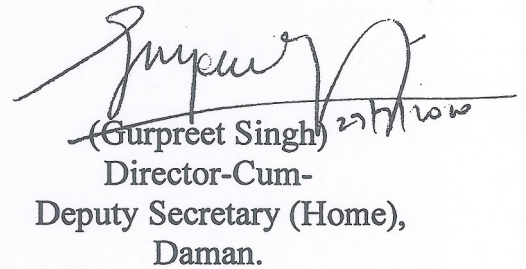 (Gurpreet Singh)
Director-Cum-
Deputy Secretary (Home),
Daman.